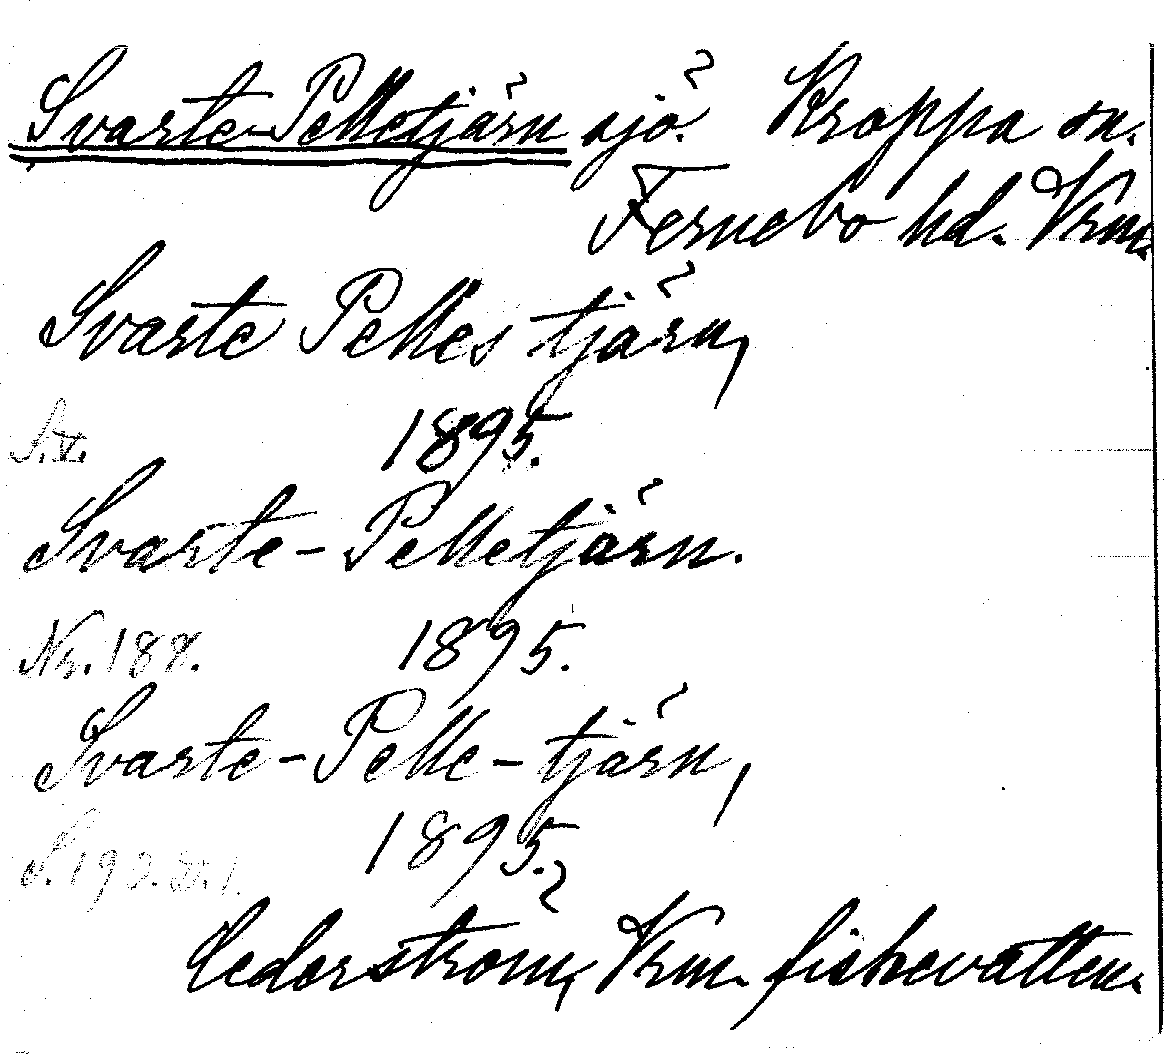 Svarte-Pelletjärn sjö. Kroppa sn.
Fernebo hd. Vrm.
Svarte Pelles tjärn,
1895.
Svarte-Pelletjärn.
Nr. 188. 1895.
Svarte-Pelle-tjärn,
1895.
Cederström, Vrm. fiskevatten.